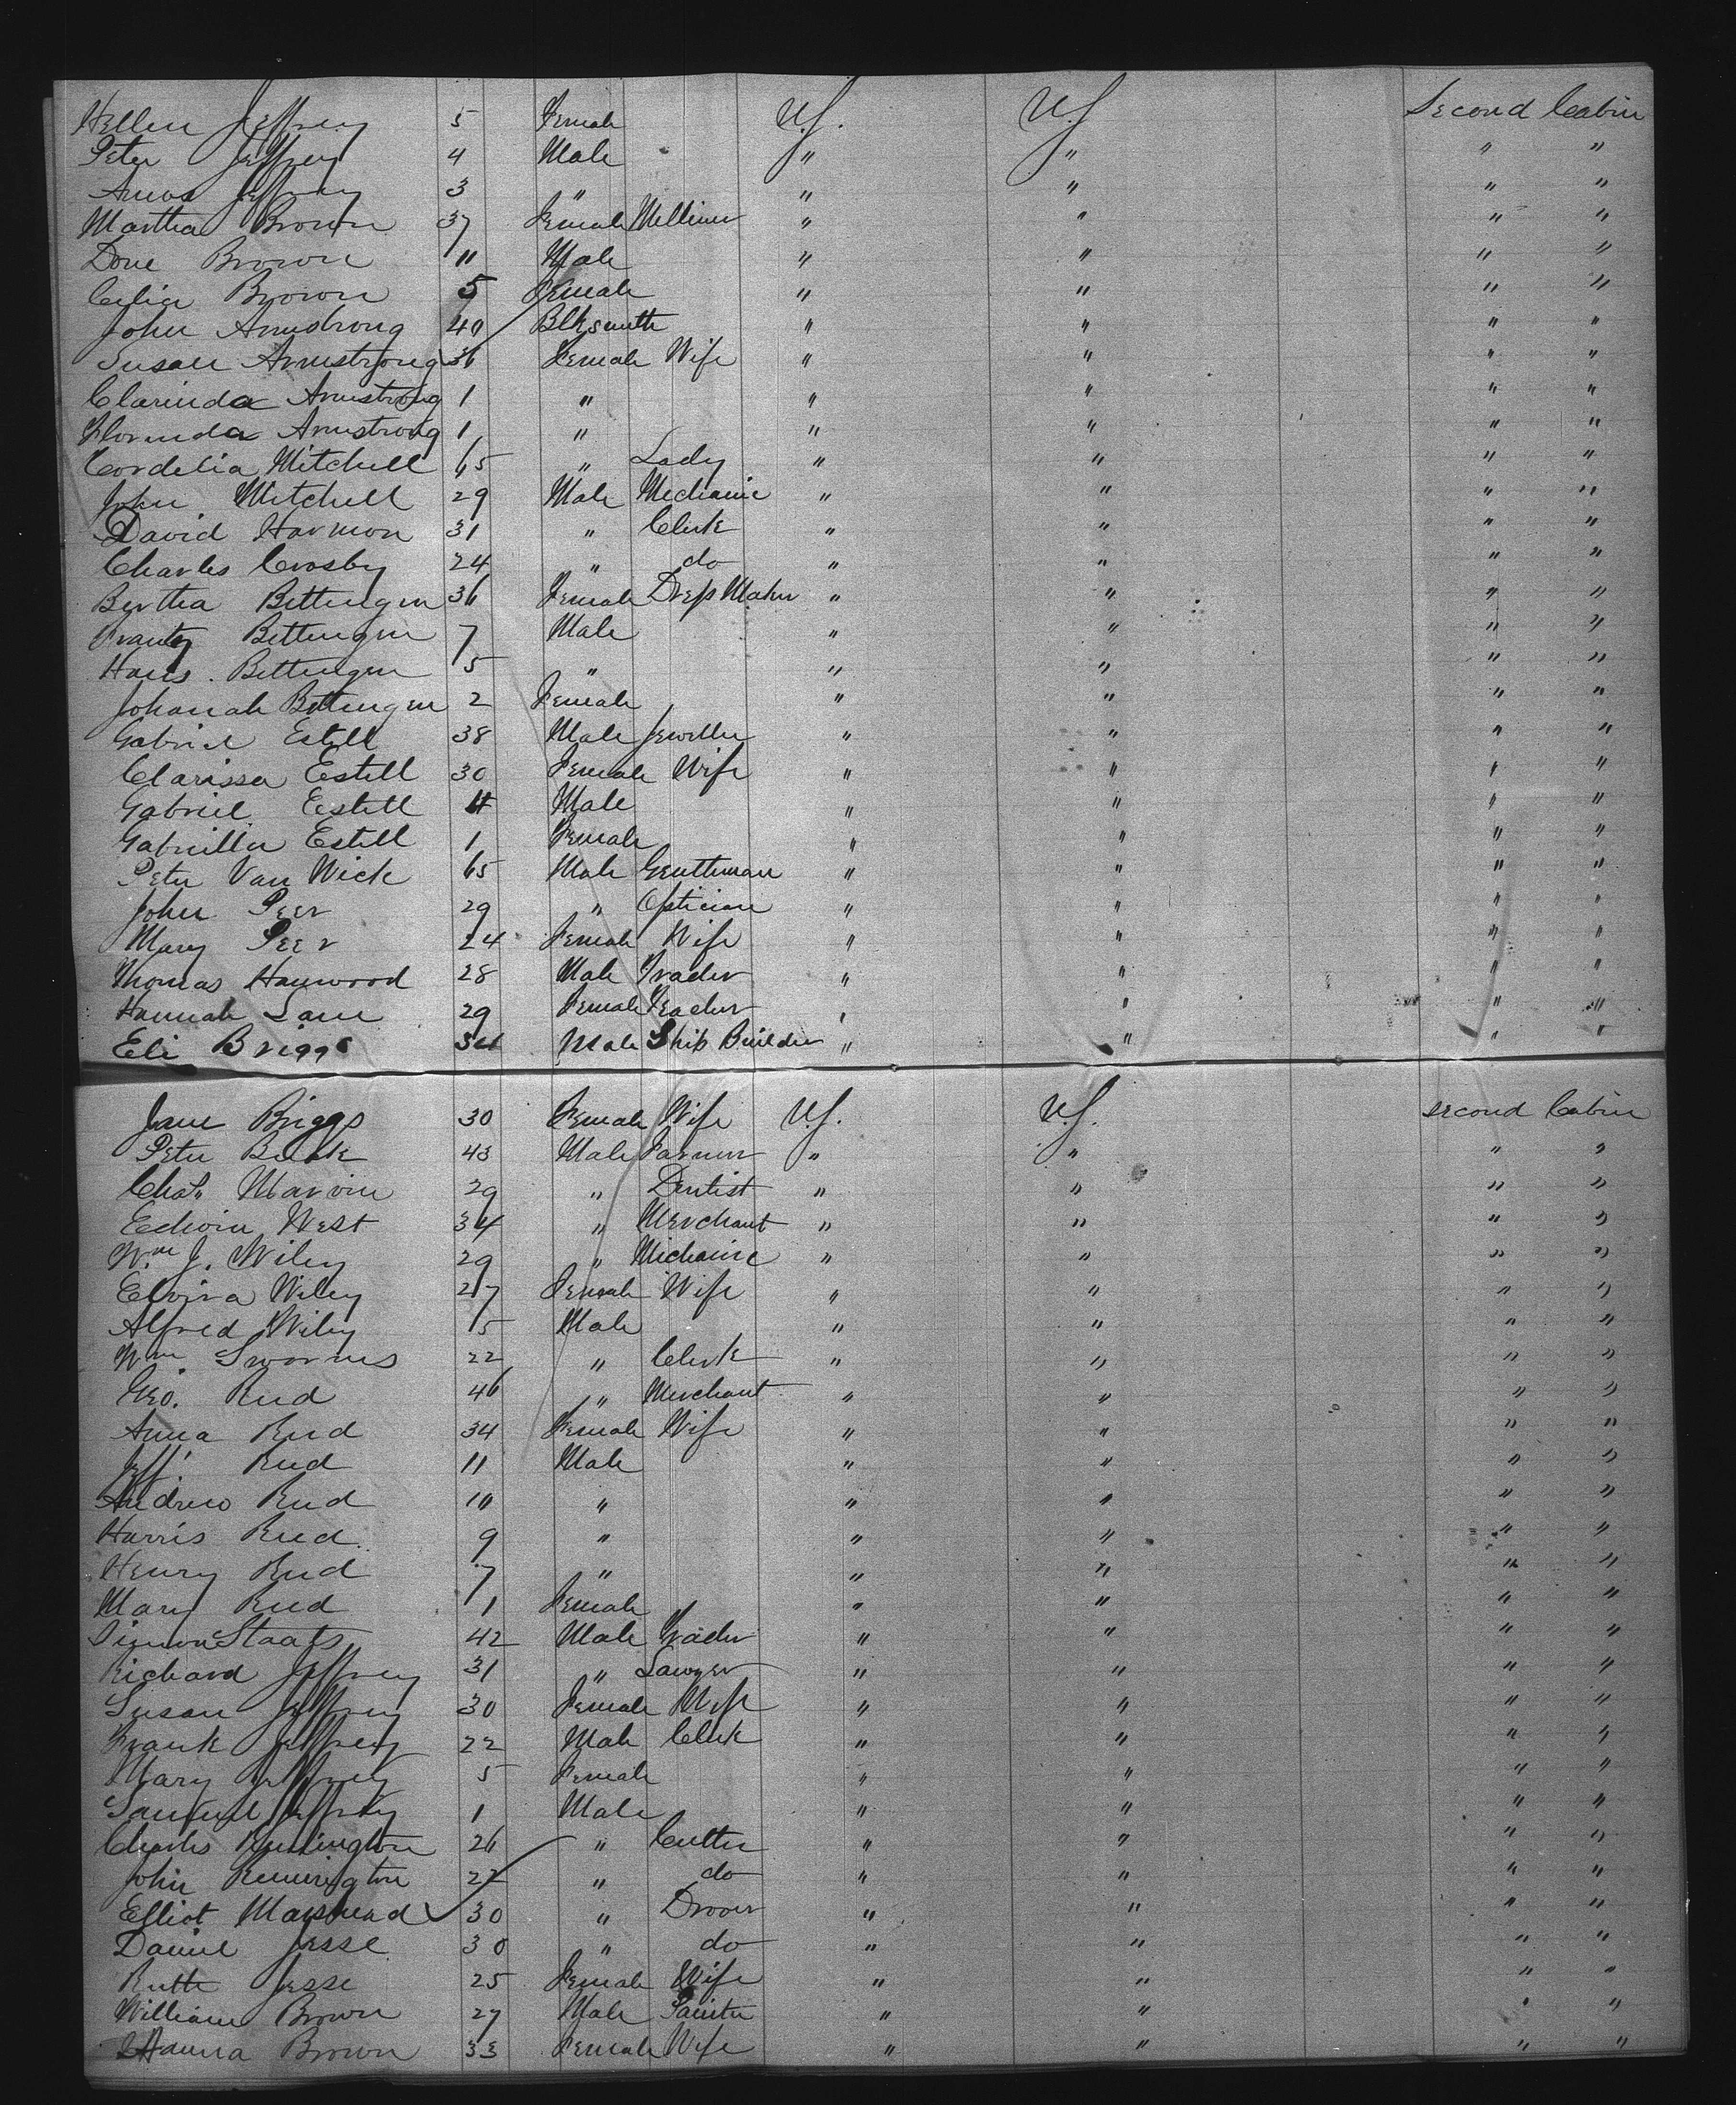 Hellen Jeffrey 5 Female U.S. U.S Second Cabin
Peter Jeffrey 4 Male " " " "
Amos Jeffrey 3 " " " " "
Martha Brown 37 Female Milliner " " " "
Dove Brown 11 Male " " " "
Celia Brown 5 Female " " " "
John Armstrong 40 Blksmith " " " "
Susan Armstrong 36 Female Wife " " " "
Clarinda Armstrong 1 " " " " "
Florinda Armstrong 1 " " " " "
Cordelia Mitchell 65 " Lady " " " "
John Mitchell 29 Male Mechanic " " " "
David Harmon 31 " Clerk " " " "
Charles Crosby 24 " do " " " "
Bertha Bettingen 36 Female Dress Maker " " " "
Frantz Bettingen 7 Male " " " "
Hans Bettingen 5 " " " " "
Johanah Bettingen 2 Female " " " "
Gabriel Estell 38 Male Jeweller " " " "
Clarissa Estell 30 Female Wife " " " "
Gabriel Estell 4 Male " " " "
Gabriella Estell 1 Female " " " "
Peter Van Wick 65 Male Gentleman " " " "
John Peer 29 " Optician " " " "
Mary Peer 24 Female Wife " " " "
Thomas Haywood 28 Male Trader " " " "
Hannah Lane 29 Female Teacher " " " "
Eli Briggs 34 Male Ship Builder " " " "
Jane Briggs 30 Female Wife U.S. U.S. second Cabin
Peter 43 Male Farmer " " " "
Chas. Marvin 29 " Dentist " " " "
Edwin West 34 " Merchant " " " "
Wm J. Wiley 29 " Michanic " " " "
Elvira Wiley 27 Female Wife " " " "
Alfred Wiley 5 Male " " " "
Wm. 22 " Clerk " " " "
Geo. Reed 46 " Merchant " " " "
Anna Reed 34 Female Wife " " " "
Jeff. Reed 11 Male " " " "
Andrew Reed 10 " " " " "
Harris Reed 9 " " " " "
Henry Reed 7 " " " " "
Mary Reed 1 Female " " " "
Simon Staats 42 Male Trader " " " "
Richard Jeffrey 31 " Lawyer " " " "
Susan Jeffrey 30 Female Wife " " " "
Frank Jeffrey 22 Male Clerk " " " "
Mary Jeffrey 5 Female " " " "
Samuel Jeffrey 1 Male " " " "
Charles Remington 26 " Cutter " " " "
John Remington 22 " do " " " "
Elliot 30 " Drover " " " "
Daniel Jesse 30 " do " " " "
Ruth Jesse 25 Female Wife " " " "
William Brown 27 Male Painter " " " "
Hanna Brown 33 Female Wife " " " "